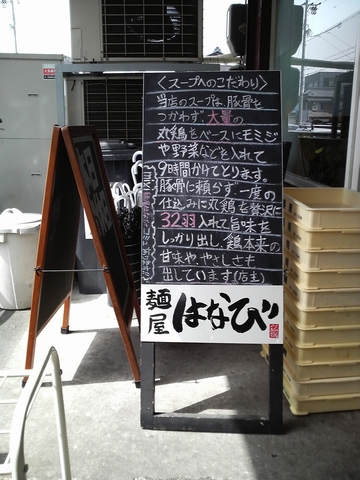 〈スープへのこだわり〉
当店のスープは、豚骨を
つかわず大量の
丸鶏をベースにモミジ
や野菜などを入れて
9時間かけてとります。
豚骨に頼らず一度の
仕込みに丸鶏を贅沢に
32羽入れて旨味を
しっかり出し、鶏本来の
甘味ややさしさも
出しています(店主)
麺屋はなび